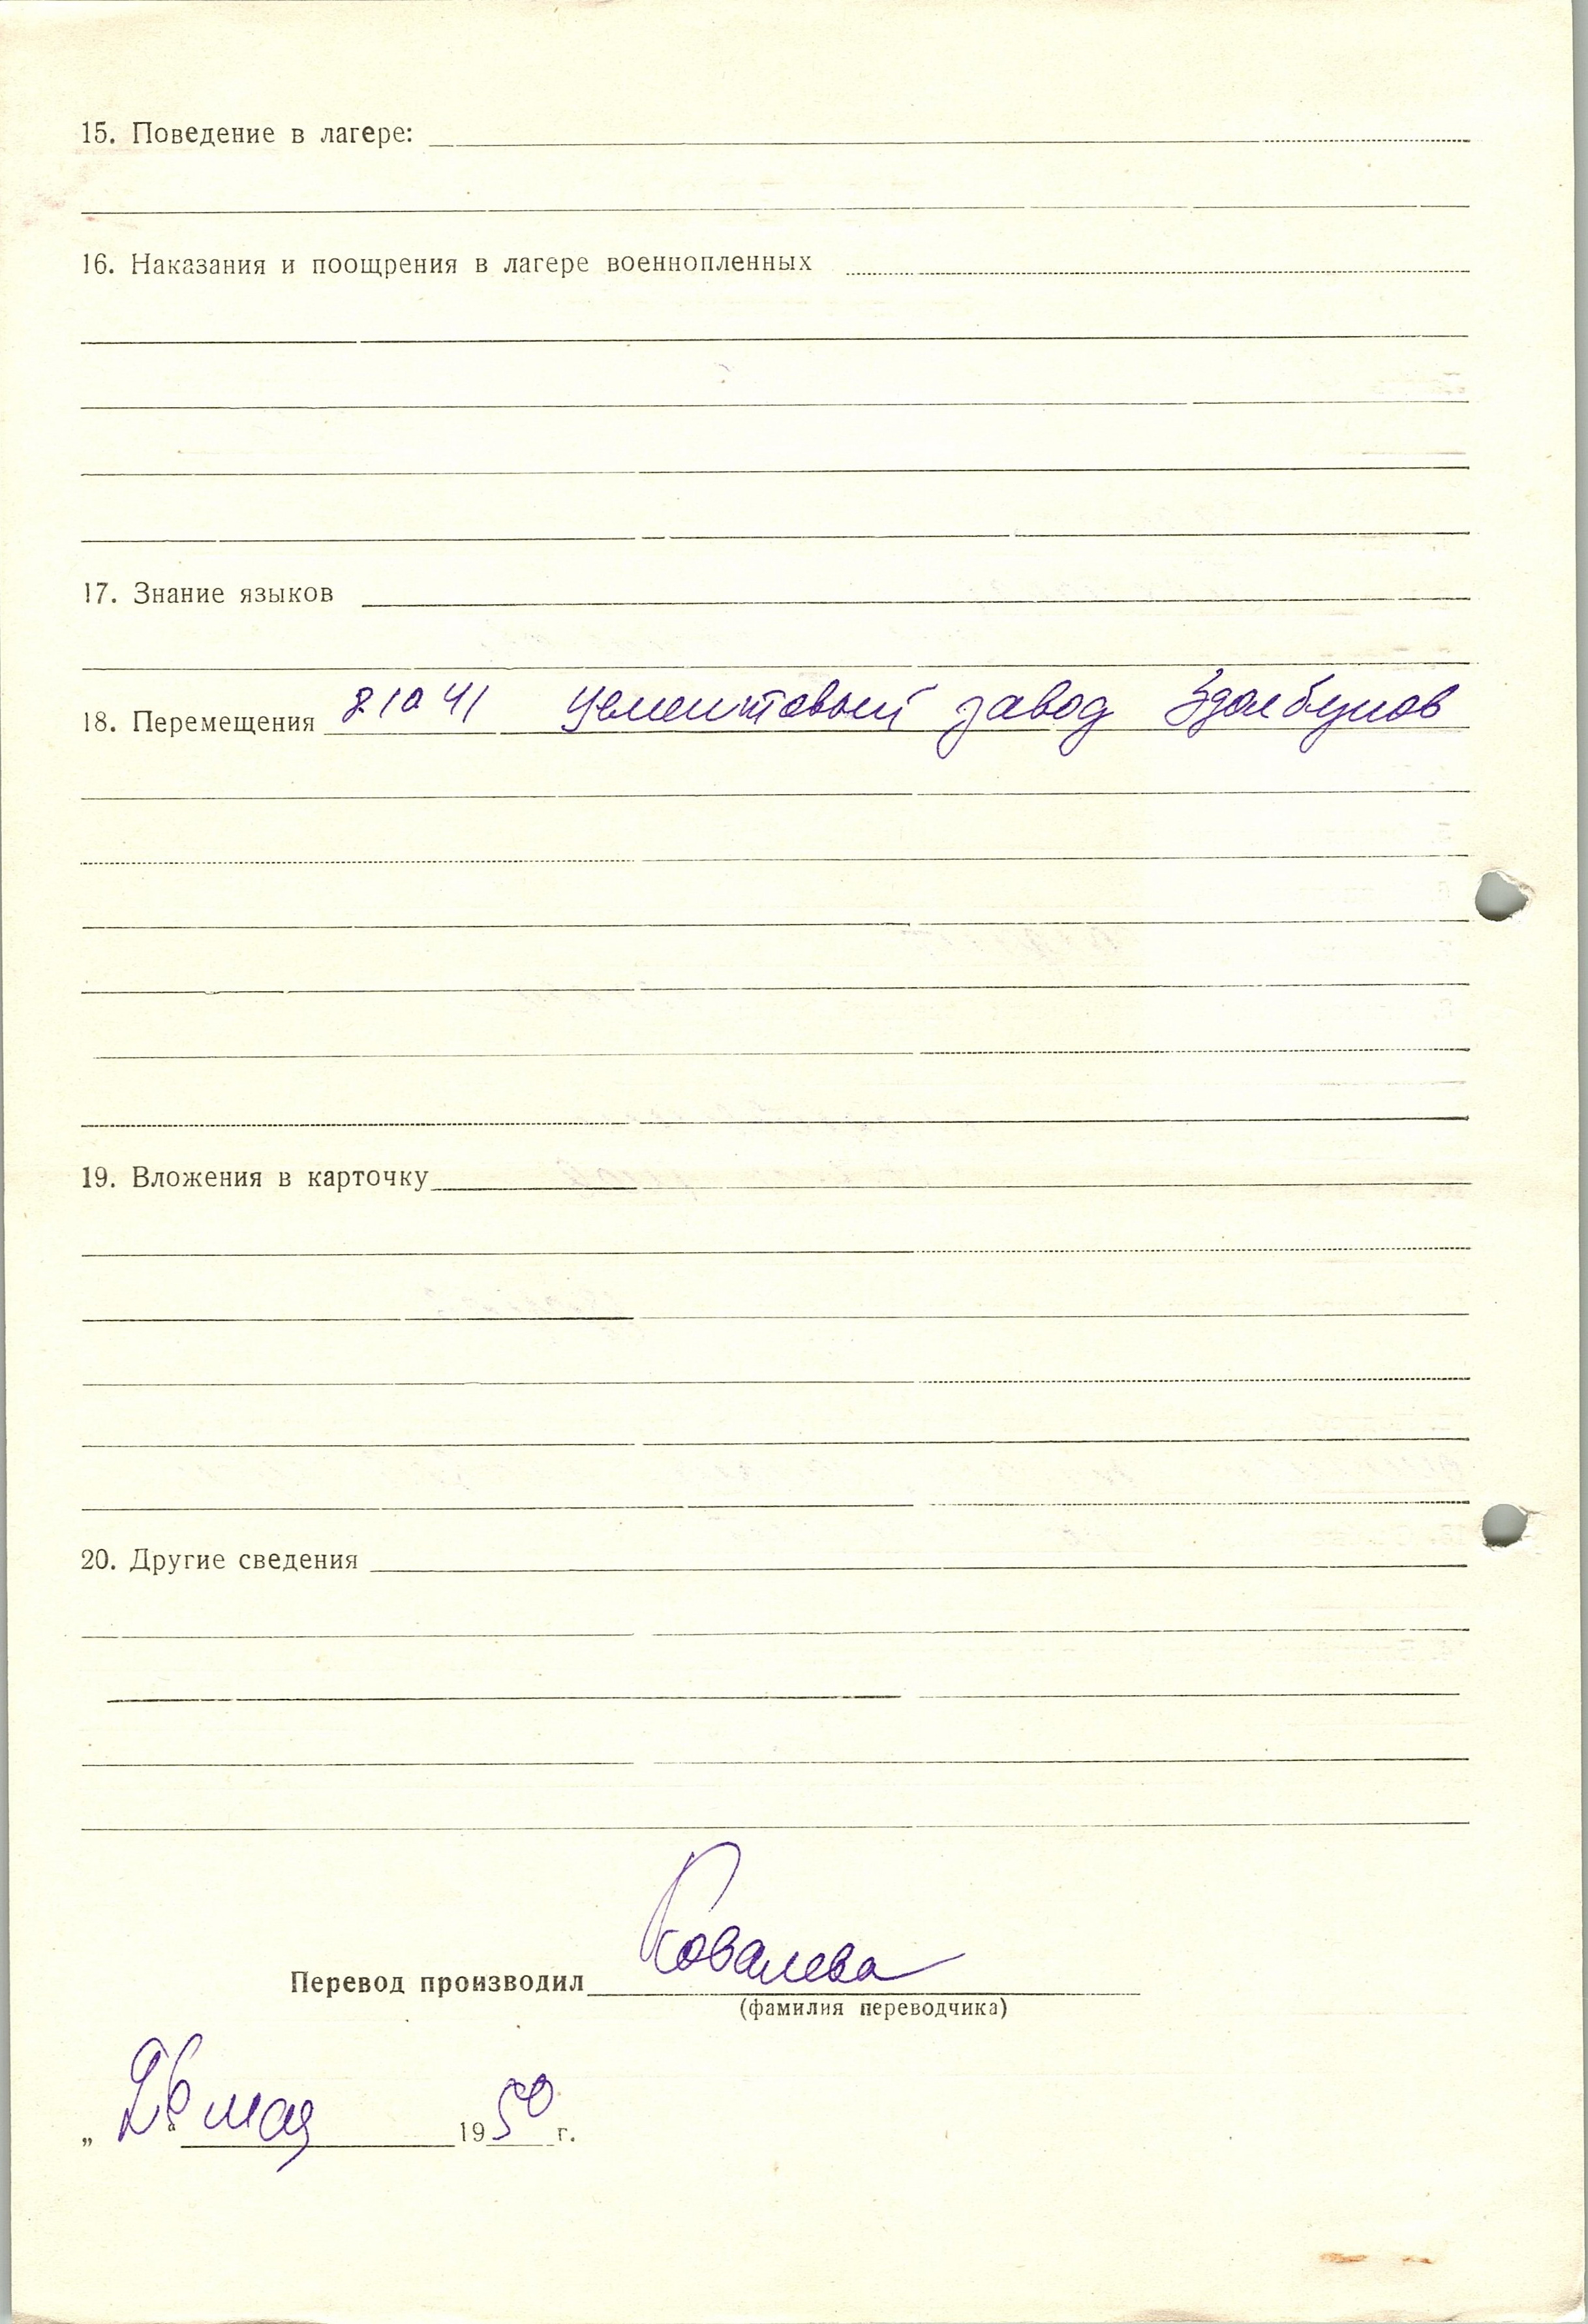 15. Поведение в лагере:
16. Наказания и поощрения в лагере военнопленных
17. Знание языков
18. Перемещения 8 10 41 Цементовый завод Здолбунов
19. Вложения в карточку
20. Другие сведения
Перевод производил Ковалева
(фамилия переводчика)
„ 26 “ мая 1950 г.